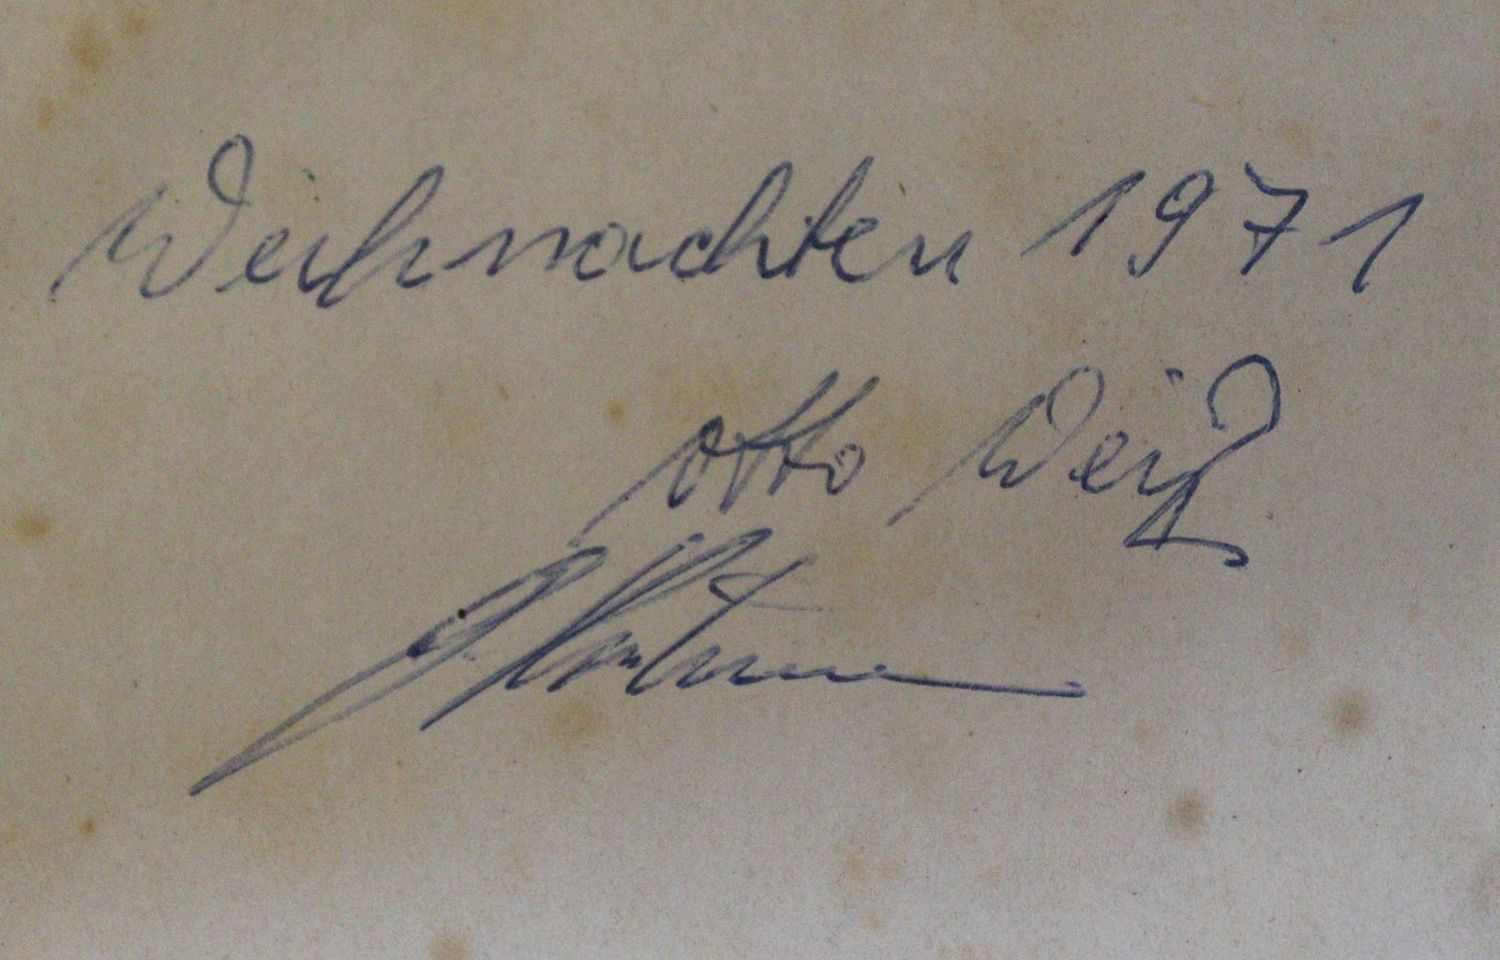 Weihnachten 1971
Otto Weiß